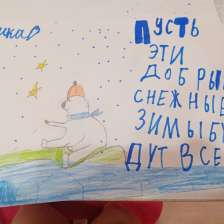 ПУСТЬ
ЭТИ
ДОБРЫ
СНЕЖНЫЕ
ЗИМЫ БУ
ДУТ ВСЕ